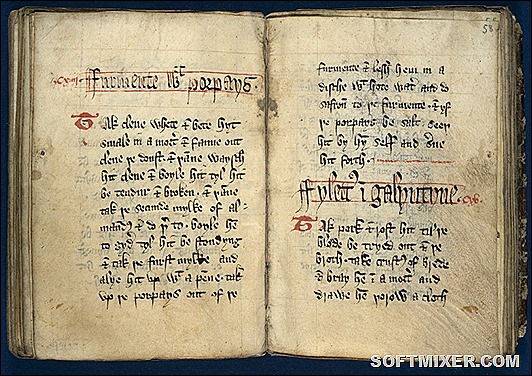 Furmente wt porpays.
Tak clene whete & bete hyt
smale in a mort' & fanne out
clene þe doust. & þanne waysch
hit clene & boyle hit tyl hit
be tendur & broken. & þanne
tak þe secunde mylke of al-
maund' & do þ'to. boyle he
to gyd' tyl hit be stondyng
& tak þe furst mylke and
alye hit up wt a penne. tak
up þe porpays out of þe
58
furmente & lesh hem in a
dische wt hote wat' and do
safron to þe furmente. & yf
þe porpays be salt. seeþ
hit by hy self and s'ue
hit forth.
Fylett' i galyntyne
Tak pork & rost hit til þe
blode be tryed out & þe
broth. take crust' of brede
& bray he i a mort' and
drawe he þorow a cloth
SOFTMIXER.COM